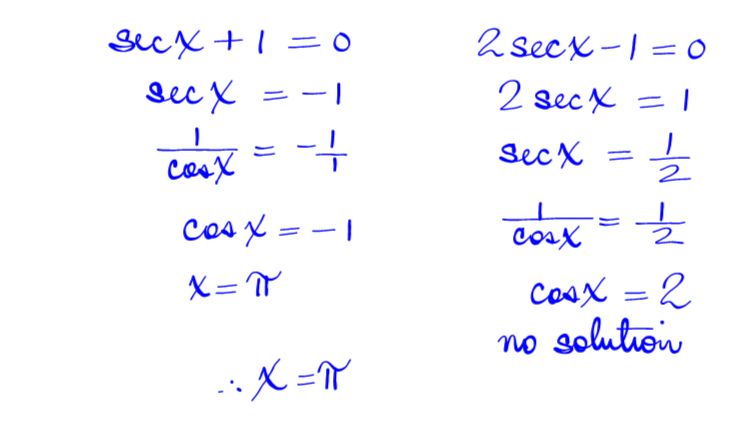 sec x + 1 = 0
sec x = -1
1/cos x = -1/1
cos x = -1
x = π
∴ x = π
2 sec x - 1 = 0
2 sec x = 1
sec x = 1/2
1/cos x = 1/2
cos x = 2
no solution